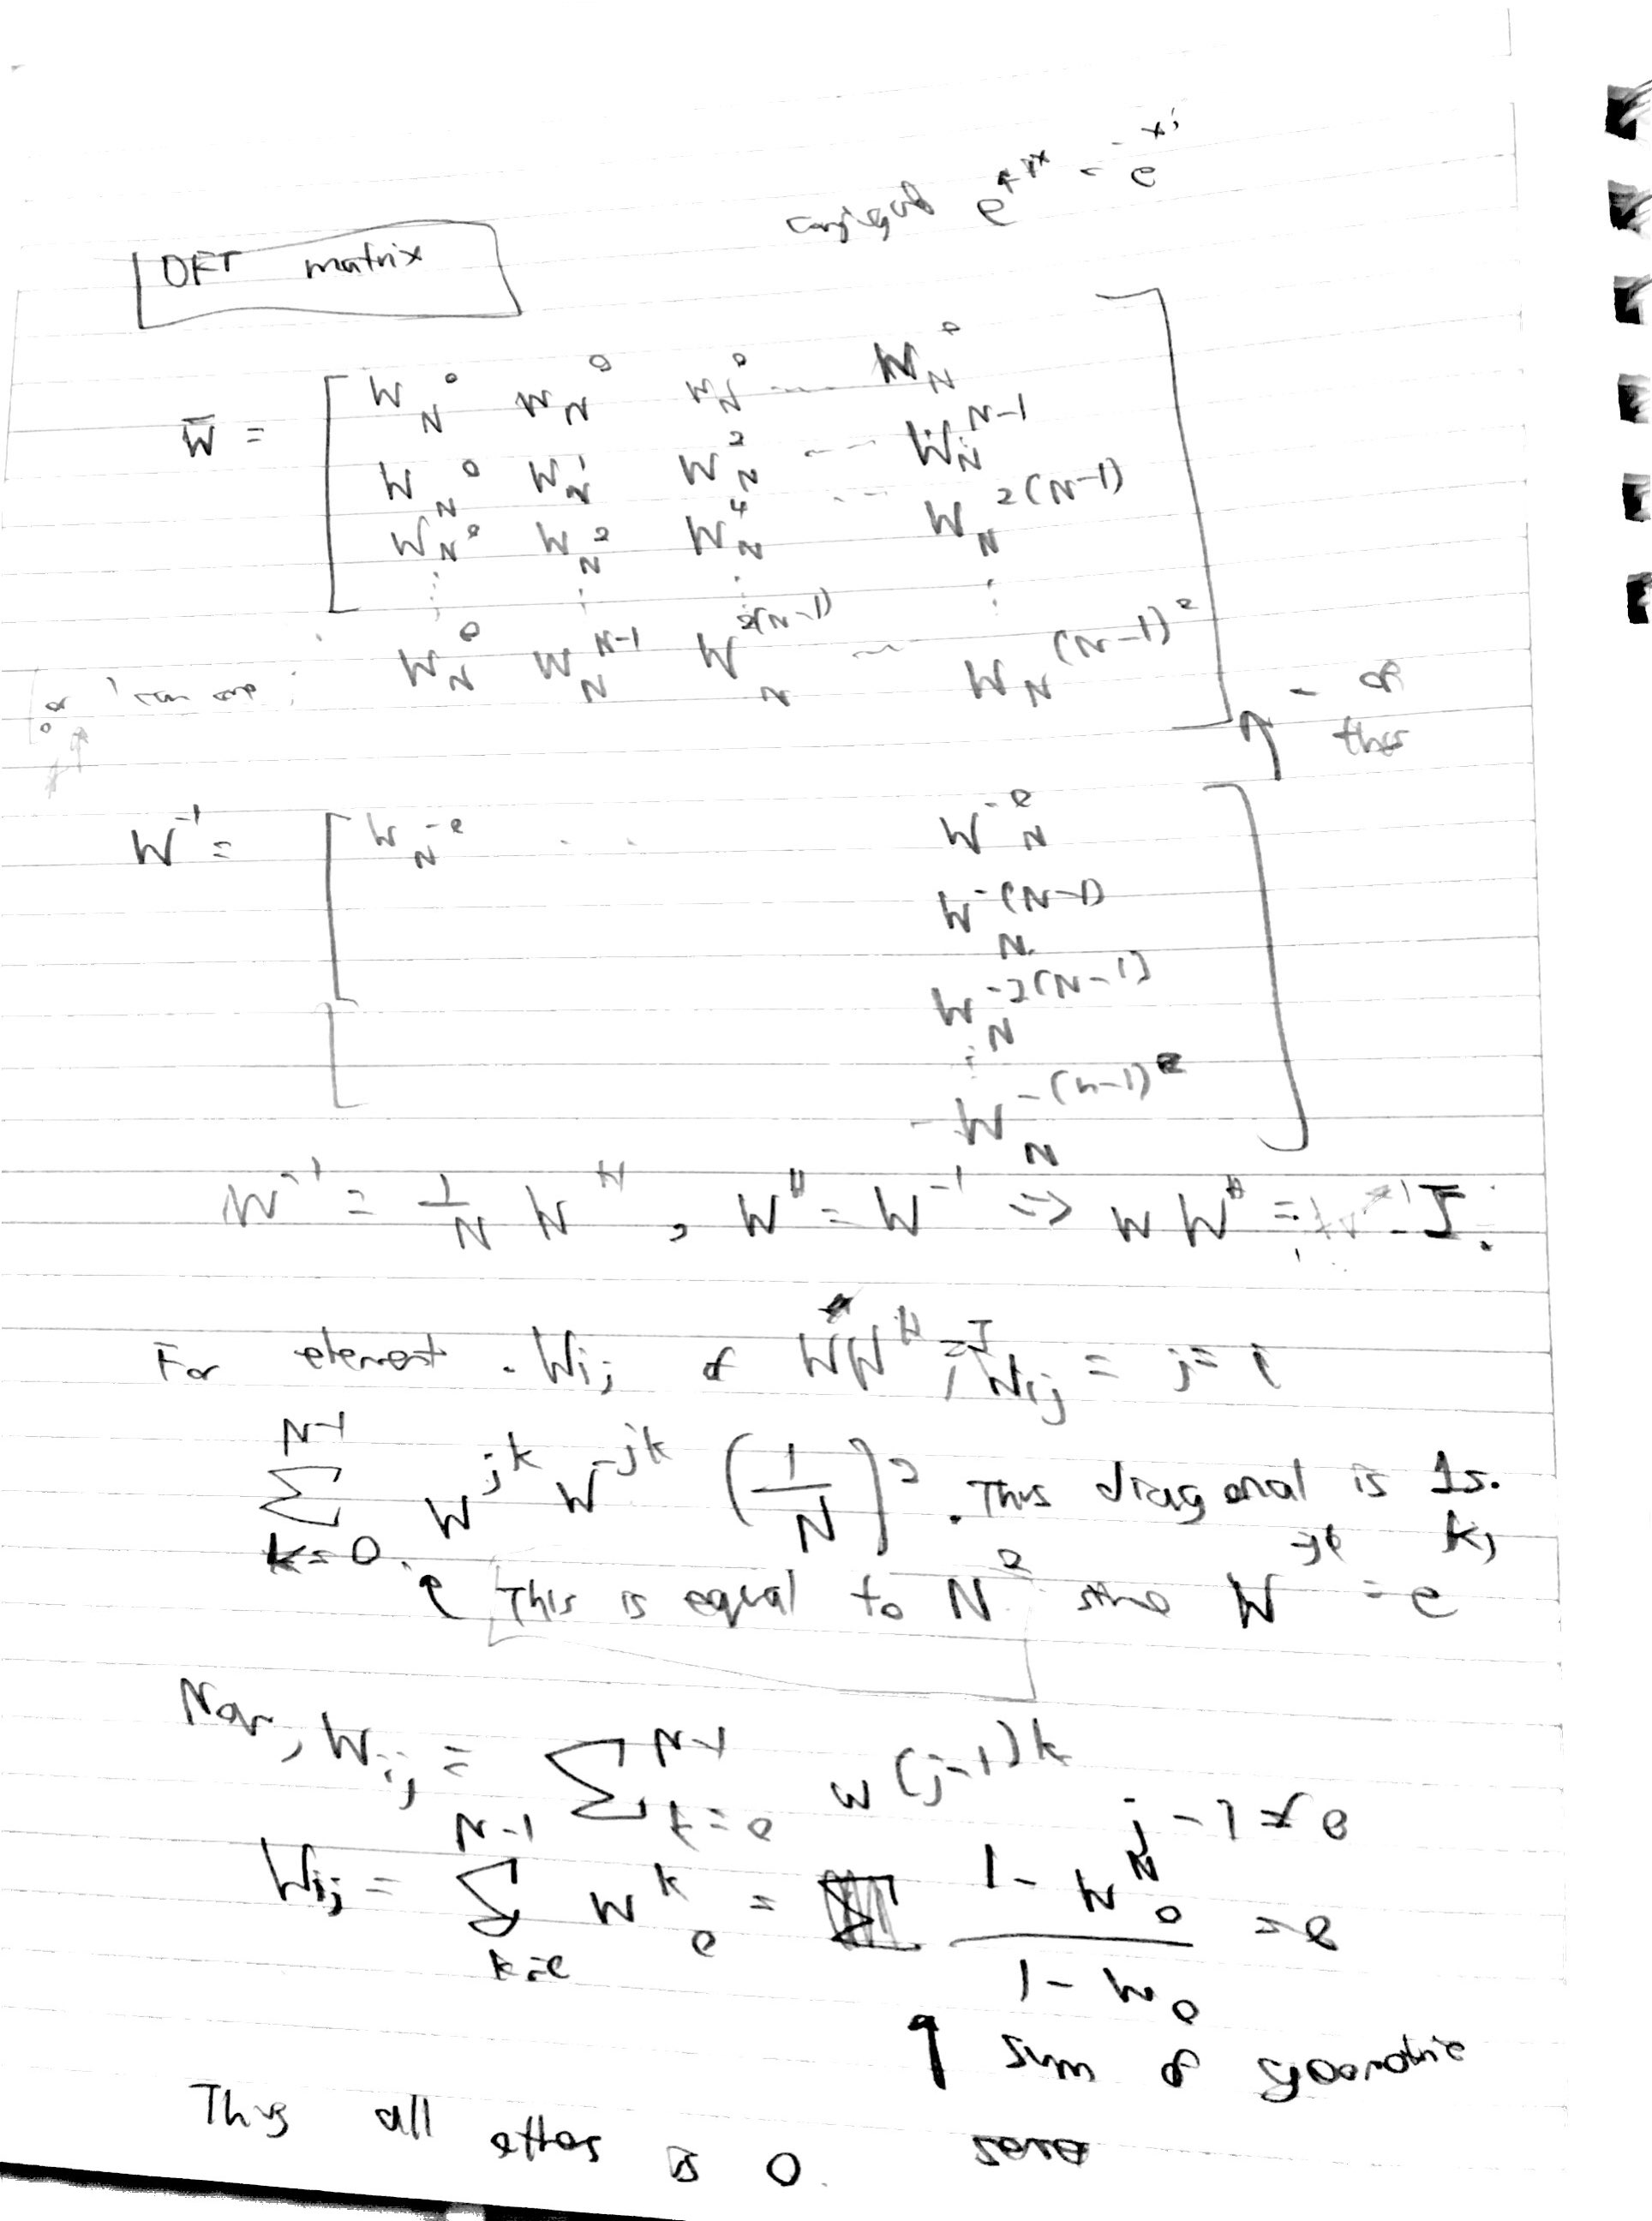 conjugate e^{+ix} = e^{-xi}
DFT matrix
W̄ = [ W_N^0 W_N^0 W_N^0 ... W_N^0
W_N^0 W_N^1 W_N^2 ... W_N^{N-1}
W_N^0 W_N^2 W_N^4 ... W_N^{2(N-1)}
⋮ ⋮ ⋮ ⋮
W_N^0 W_N^{N-1} W_N^{2(N-1)} ... W_N^{(N-1)^2} ]
↑ - of
this
W^{-1} = [ W_N^{-0} ... W_N^{-0}
W_N^{-(N-1)}
W_N^{-2(N-1)}
⋮
W_N^{-(n-1)^2} ]
W^{-1} = 1/N W^H , W^H = W^{-1} => W W^H = I.
For element W_{ij} of WW^H = I, W_{ij} = j = i
∑_{k=0}^{N-1} W^{jk} W^{-jk} (1/N)^2 . Thus diagonal is 1s.
↑ This is equal to N^2 W = e
Now, W_{ij} = ∑_{k=0}^{N-1} W^{(j-1)k}
j - 1 ≠ 0
W_{ij} = ∑_{k=0}^{N-1} W_0^k = (1 - W_0^N) / (1 - W_0) = 0
↑ sum of geometric
Thus all others is 0. zero